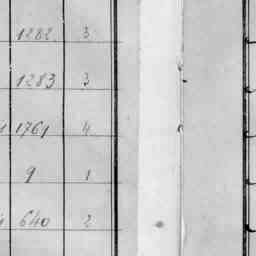 1282 3
1283 3
1761 4
9 1
640 2